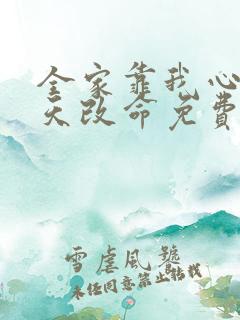 全家靠我心
天改命免费
雪虐风號
未经同意禁止转载